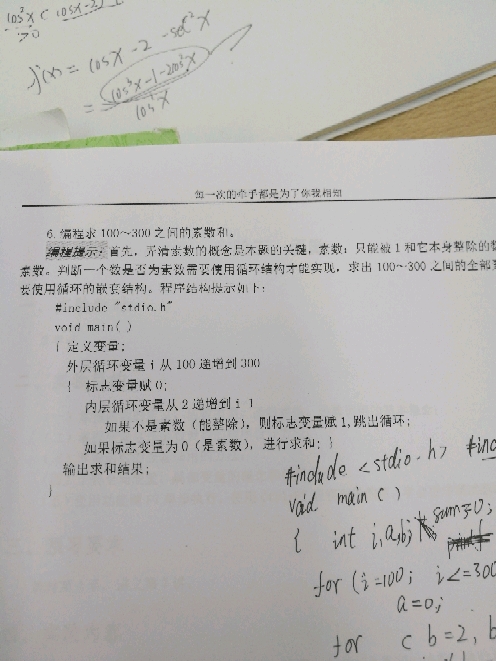 cos³x
>0
f'(x) = cosx - 2 - sec²x
= cos³x-1-2cos²x
cos²x
每一次的牵手都是为了你我相知
6. 编程求 100～300 之间的素数和。
编程提示：首先，弄清素数的概念是本题的关键，素数：只能被 1 和它本身整除的数
素数。判断一个数是否为素数需要使用循环结构才能实现，求出 100～300 之间的全部
要使用循环的嵌套结构。程序结构提示如下：
#include "stdio.h"
void main( )
{ 定义变量;
外层循环变量 i 从 100 递增到 300
{ 标志变量赋 0;
内层循环变量从 2 递增到 i-1
如果不是素数（能整除），则标志变量赋 1, 跳出循环;
如果标志变量为 0（是素数），进行求和; }
输出求和结果;
}
#include <stdio.h> #inc
void main ( )
{ int i,a,b; sum=0;
for (i=100; i<=300
a=0;
for ( b=2, b